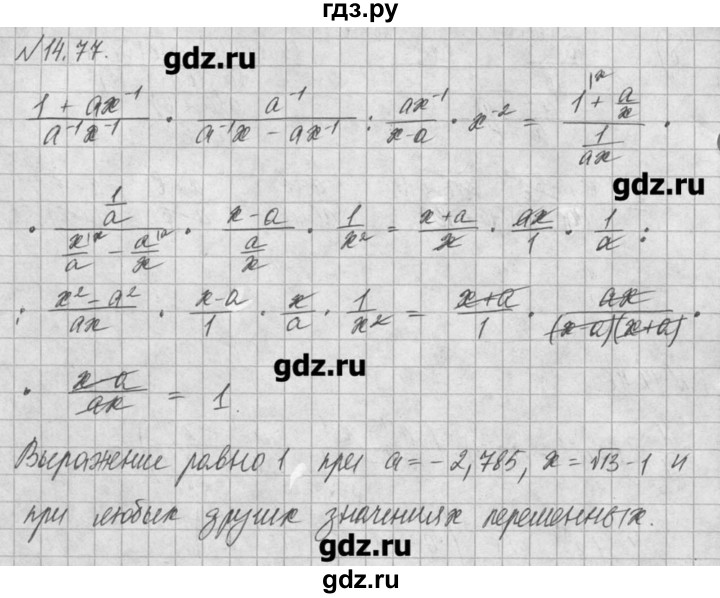 гдз.ру
№14.77.
gdz.ru
(1 + ax⁻¹)/(a⁻¹x⁻¹) · a⁻¹/(a⁻¹x - ax⁻¹) : ax⁻¹/(x-a) · x⁻² = (1|ˣ + a/x)/(1/(ax)) ·
gdz.ru
· (1/a)/(x|ˣ/a - a|ᵃ/x) · (x-a)/(a/x) · 1/x² = (x+a)/x · ax/1 · 1/a :
: (x²-a²)/(ax) · (x-a)/1 · x/a · 1/x² = (x+a)/1 · ax/((x-a)(x+a)) ·
gdz.ru
· (x-a)/(ax) = 1.
Выражение равно 1 при a = -2,785, x = √13 - 1 и
при любых других значениях переменных.
gdz.ru
gdz.ru